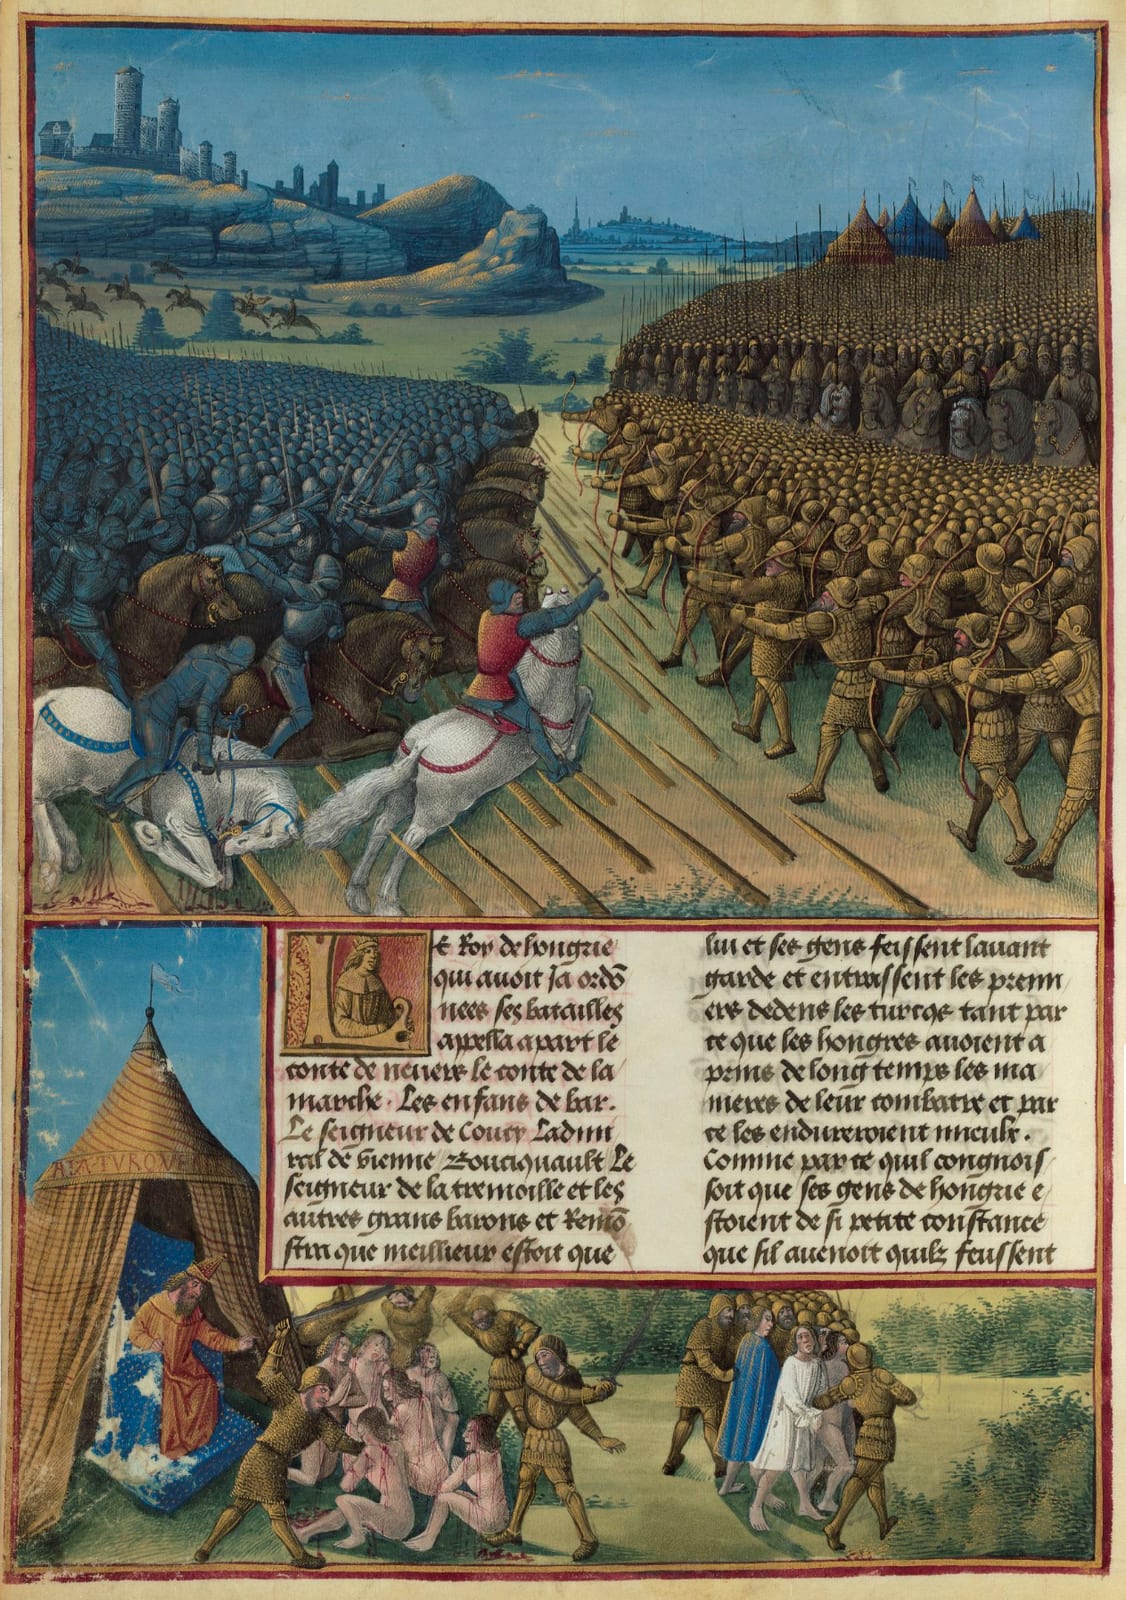 Le Roy de hongrie
qui avoit ja ordō
nees ses batailles
appella a part le
conte de nevers le conte de la
marche. Les enfans de bar.
Le seigneur de Coucy Ladmi
ral de vienne Bouciquault Le
seigneur de la tremoille et les
autres grans barons et Remō
stra que meilleur estoit que
lui et ses gens feissent lavant
garde et entrassent les premi
ers dedens les turcqs tant par
ce que les hongres avoient a
prins de long temps les ma
nieres de leur combatre et par
ce les endureroient mieulx.
Comme par ce quil congnois
soit que ses gens de hongrie e
stoient de si petite constance
que sil avenoit quilz feussent